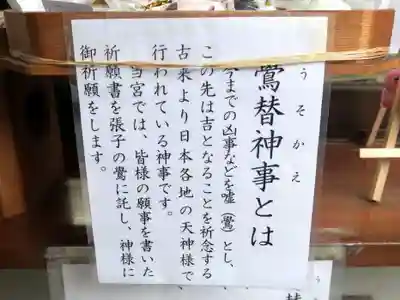 うそかえ
鷽替神事とは
今までの凶事などを嘘（鷽）とし、
この先は吉となることを祈念する、
古来より日本各地の天神様で
行われている神事です。
当宮では、皆様の願事を書いた
祈願書を張子の鷽に託し、神様に
御祈願をします。